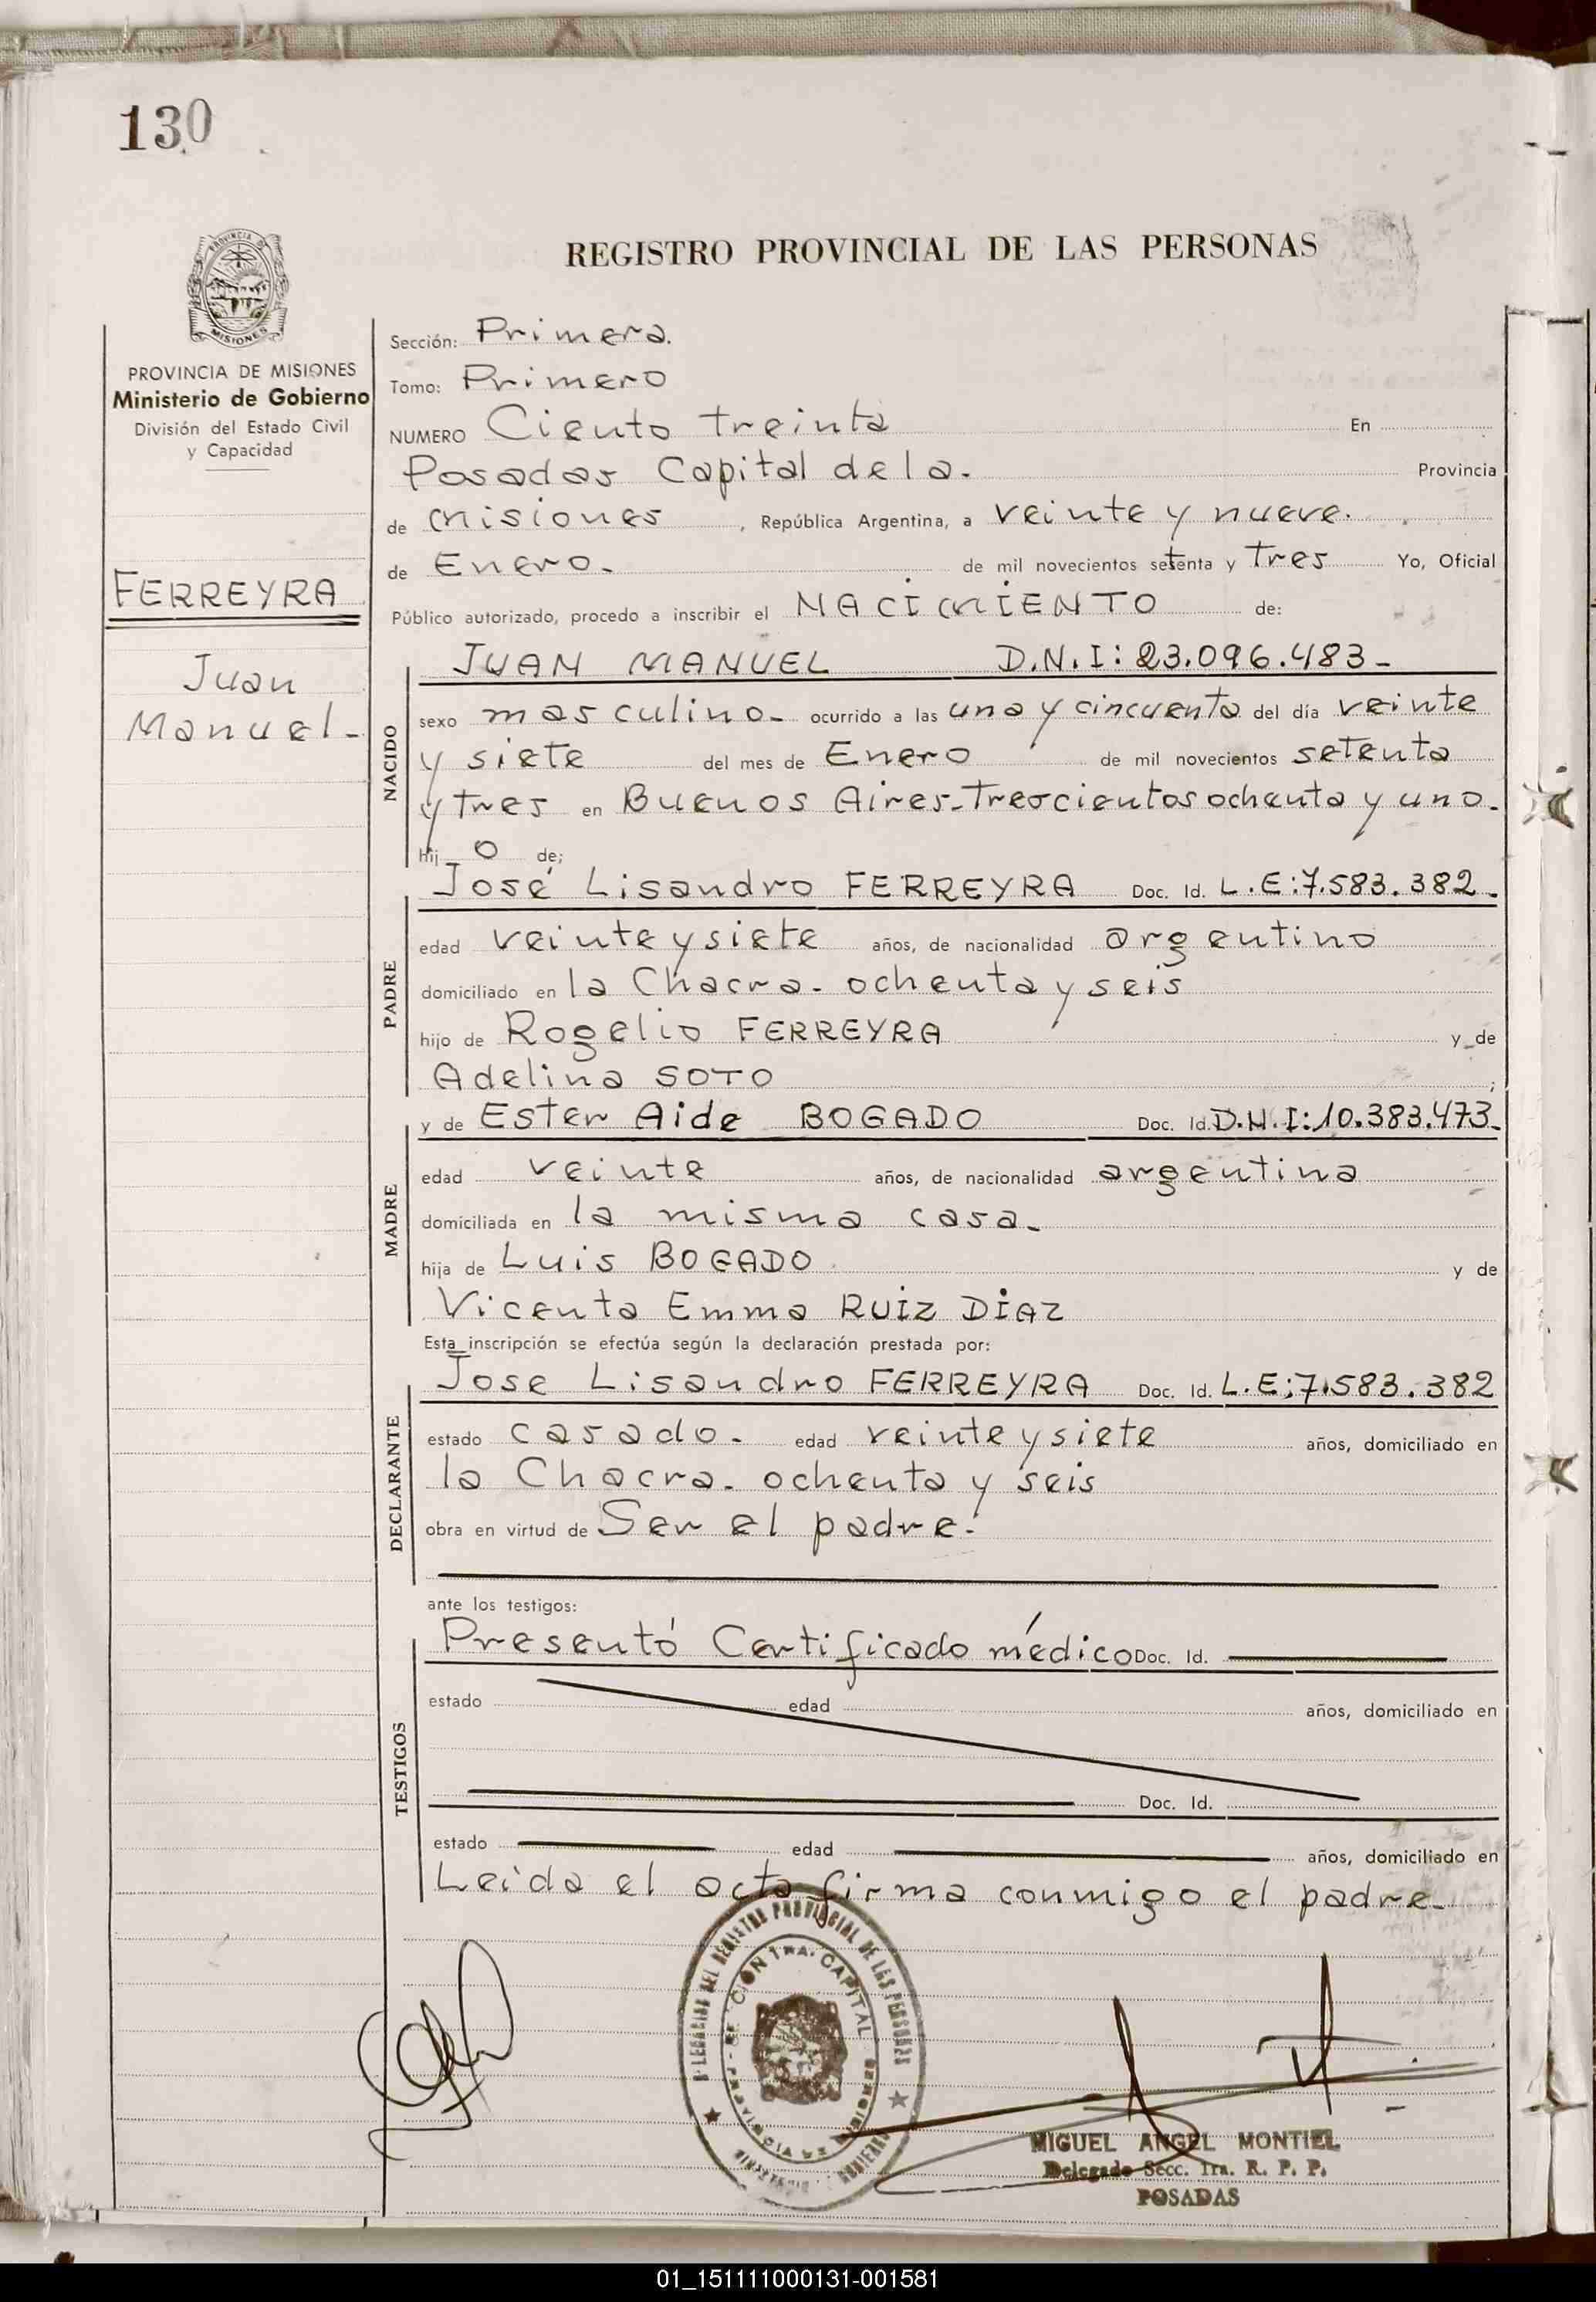 130
REGISTRO PROVINCIAL DE LAS PERSONAS
MISIONES
PROVINCIA DE MISIONES
Ministerio de Gobierno
División del Estado Civil
y Capacidad
FERREYRA
Juan
Manuel-
Sección: Primera.
Tomo: Primero
NUMERO Ciento treinta En
Posadas Capital de la. Provincia
de Misiones, República Argentina, a veinte y nueve.
de Enero. de mil novecientos setenta y tres Yo, Oficial
Público autorizado, procedo a inscribir el NACIMIENTO de:
NACIDO
JUAN MANUEL D.N.I: 23.096.483-
sexo masculino- ocurrido a las una y cincuenta del día veinte
y siete del mes de Enero de mil novecientos setenta
y tres en Buenos Aires-Trescientos ochenta y uno.
hij o de;
PADRE
José Lisandro FERREYRA Doc. Id. L.E:7.583.382-
edad veinte y siete años, de nacionalidad argentino
domiciliado en la Chacra- ochenta y seis
hijo de Rogelio FERREYRA y de
Adelina SOTO ;
MADRE
y de Ester Aide BOGADO Doc. Id. D.N.I:10.383.473-
edad veinte años, de nacionalidad argentina
domiciliada en la misma casa-
hija de Luis BOGADO y de
Vicenta Emma RUIZ DIAZ
Esta inscripción se efectúa según la declaración prestada por:
DECLARANTE
Jose Lisandro FERREYRA Doc. Id. L.E:7.583.382
estado casado- edad veinte y siete años, domiciliado en
la Chacra- ochenta y seis
obra en virtud de Ser el padre.
ante los testigos:
TESTIGOS
Presentó Certificado médico Doc. Id.
estado edad años, domiciliado en
Doc. Id.
estado edad años, domiciliado en
Leida el acta firma conmigo el padre-
DEL REGISTRO PROVINCIAL DE LAS PERSONAS
CAPITAL
MIGUEL ANGEL MONTIEL
Delegado Secc. 1ra. R. P. P.
POSADAS
01_151111000131-001581